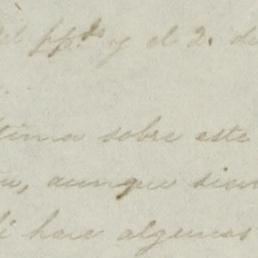 el pp.do y el 2. de
tima sobre este
aunque sien
hace algunos